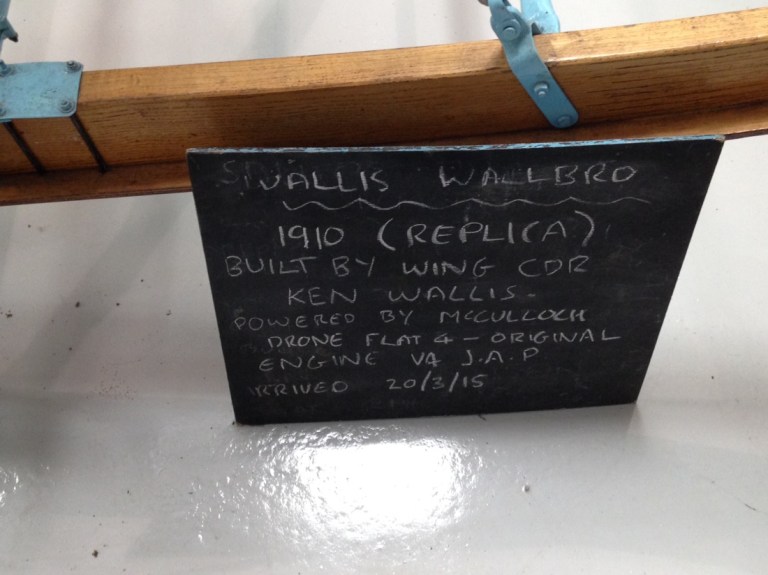 WALLIS WALLBRO
1910 (REPLICA)
BUILT BY WING CDR
KEN WALLIS.
POWERED BY MCCULLOCH
DRONE FLAT 4 - ORIGINAL
ENGINE V4 J.A.P
ARRIVED 20/3/15